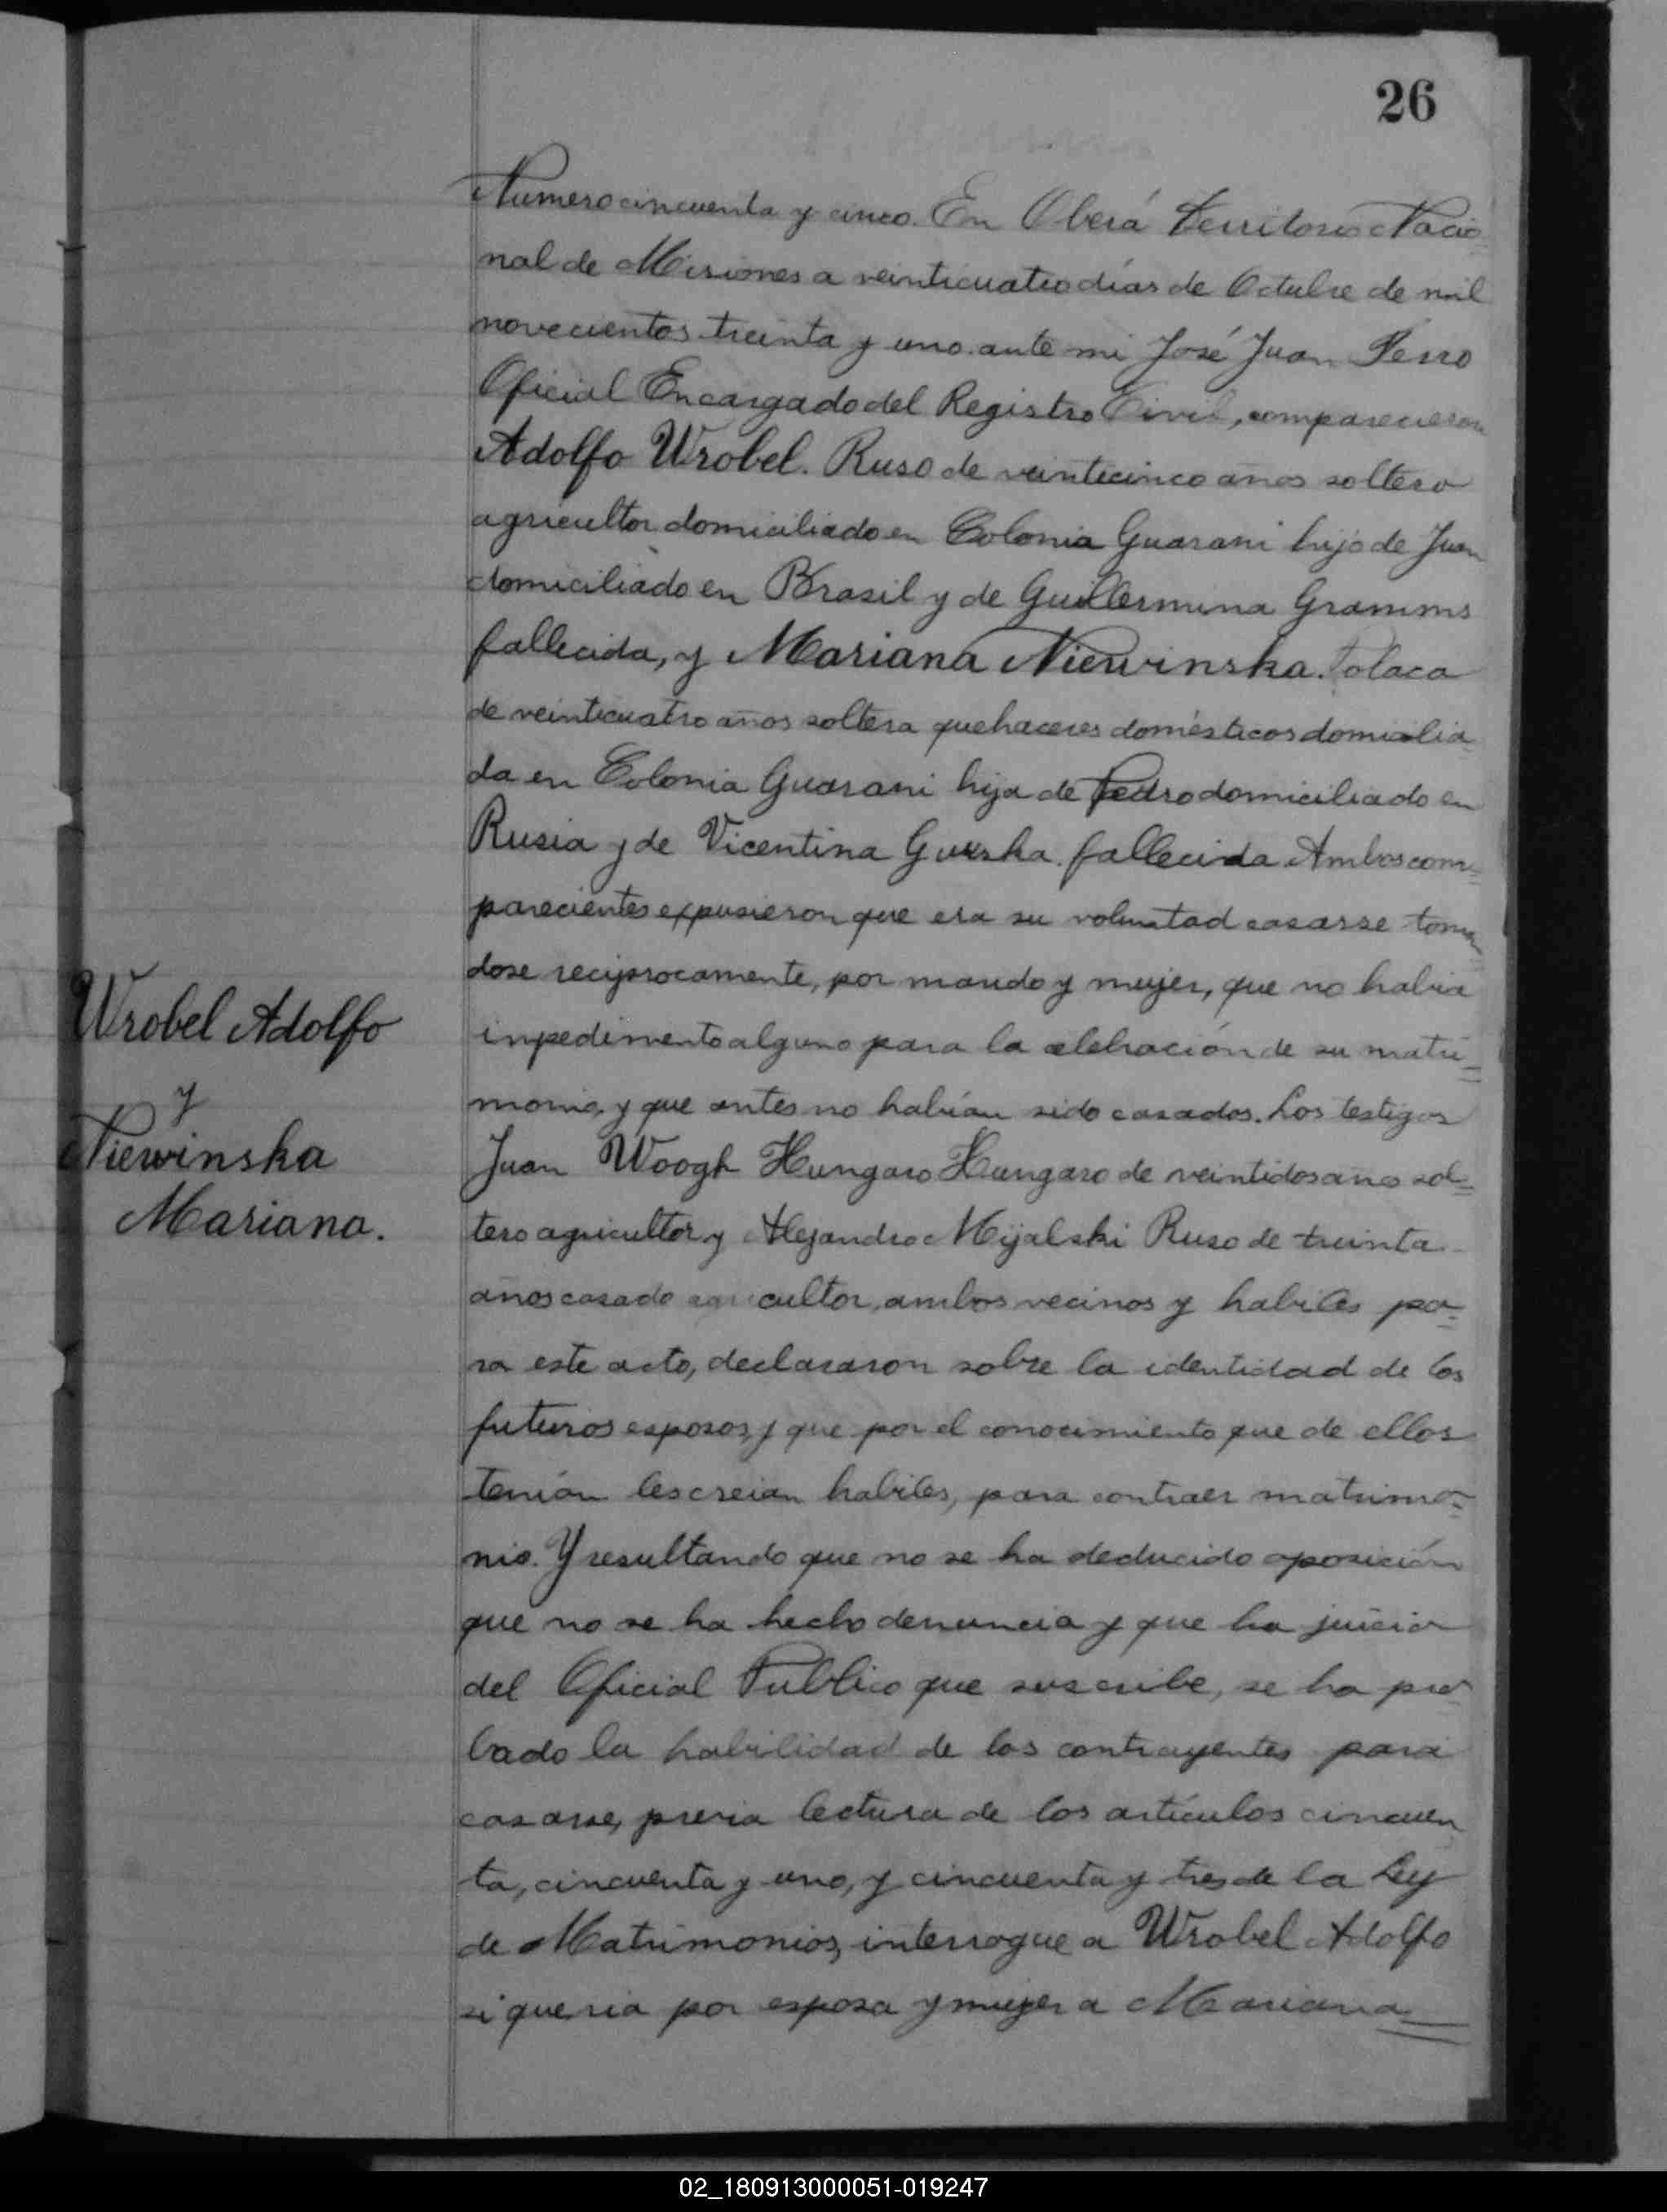 26
Numero cincuenta y cinco. En Oberá Territorio Nacio
nal de Misiones a veinticuatro días de Octubre de mil
novecientos treinta y uno. ante mi José Juan Perro
Oficial Encargado del Registro Civil, comparecieron
Adolfo Wrobel. Ruso de veinticinco años soltero
agricultor domiciliado en Colonia Guarani hijo de Juan
domiciliado en Brasil y de Guillermina Gramms
fallecida, y Mariana Niewinska. Polaca
de veinticuatro años soltera quehaceres domésticos domicilia
da en Colonia Guarani hija de Pedro domiciliado en
Rusia y de Vicentina Gurska. fallecida. Ambos com=
parecientes expusieron que era su voluntad casarse toman
dose reciprocamente, por marido y mujer, que no habia
inpedimento alguno para la celebración de su matri=
monio, y que antes no habían sido casados. Los testigos
Wrobel Adolfo
y
Niewinska
Mariana.
Juan Woogh Hungaro Hungaro de veintidos años sol=
tero agricultor y Alejandro Mijalski Ruso de treinta
años casado agricultor, ambos vecinos y habiles pa=
ra este acto, declararon sobre la identidad de los
futuros esposos, y que por el conocimiento que de ellos
tenían les creian habiles, para contraer matrimo=
nio. Y resultando que no se ha deducido oposición
que no se ha hecho denuncia y que ha juicio
del Oficial Publico que suscribe, se ha pro
bado la habilidad de los contrayentes para
casarse, previa lectura de los artículos cincuen
ta, cincuenta y uno, y cincuenta y tres de la Ley
de Matrimonios, interrogue a Wrobel Adolfo
si queria por esposa y mujer a Mariana
02_180913000051-019247